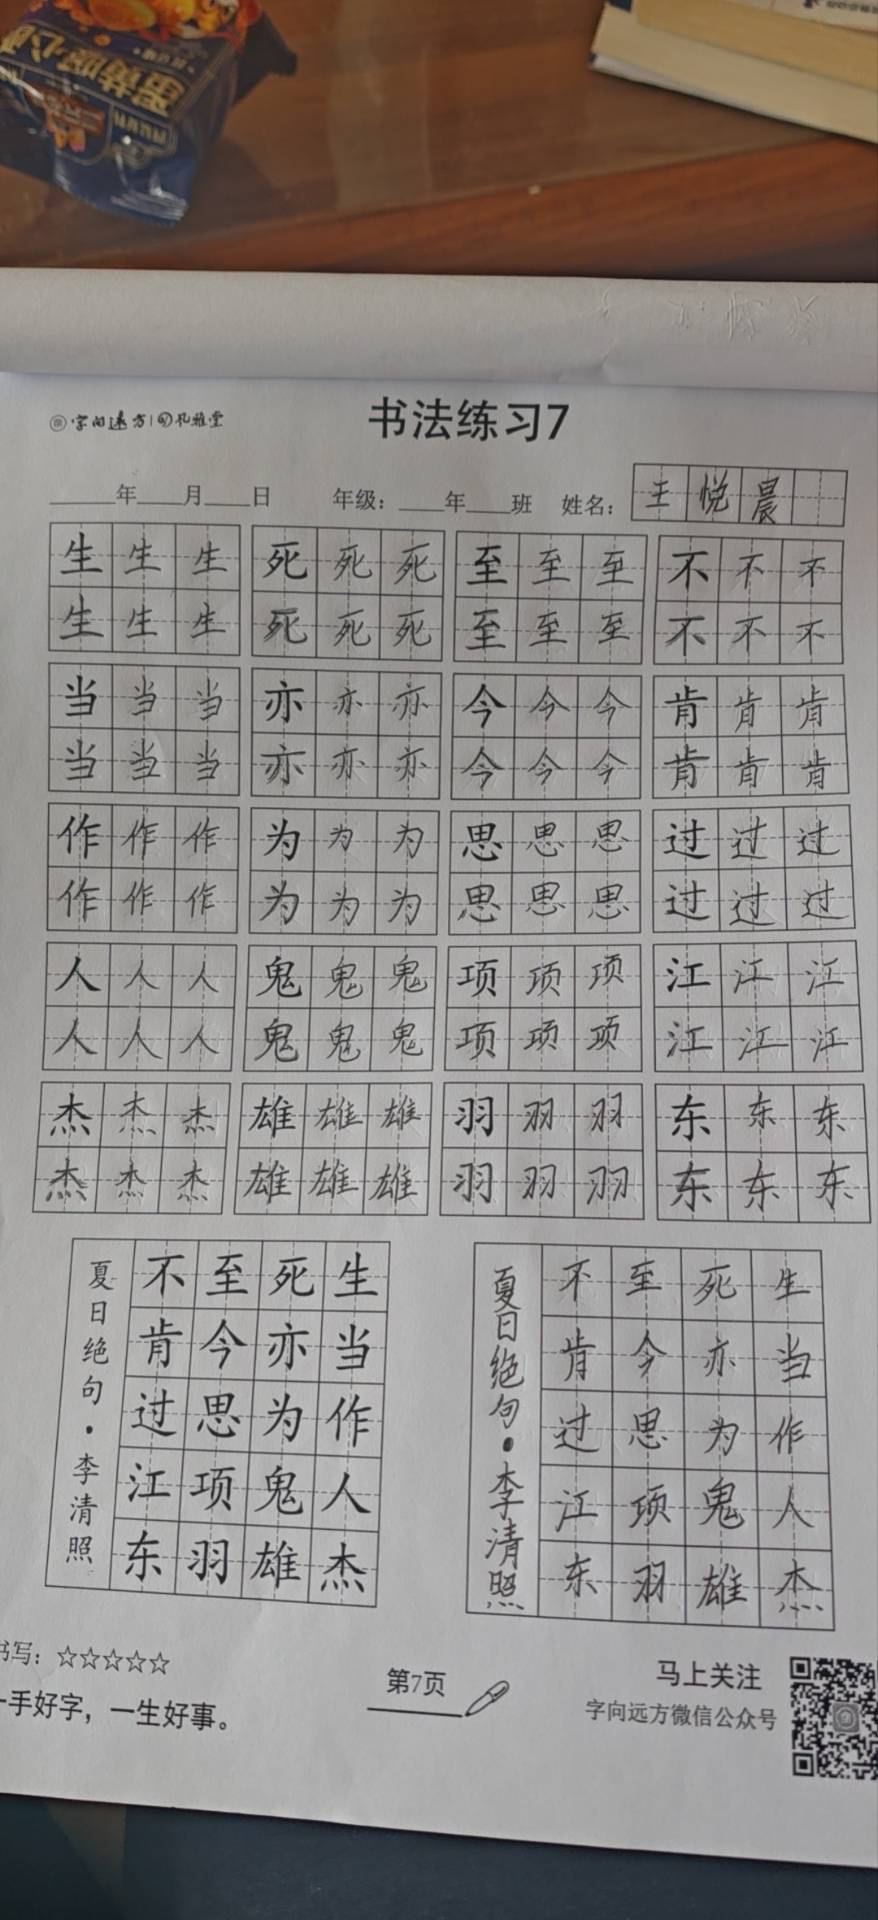 蛋黄
字向远方 | 孔雅堂
书法练习7
年 月 日 年级： 年 班 姓名： 王悦晨
生生生 死死死 至至至 不不不
生生生 死死死 至至至 不不不
当当当 亦亦亦 今今今 肯肯肯
当当当 亦亦亦 今今今 肯肯肯
作作作 为为为 思思思 过过过
作作作 为为为 思思思 过过过
人人人 鬼鬼鬼 项项项 江江江
人人人 鬼鬼鬼 项项项 江江江
杰杰杰 雄雄雄 羽羽羽 东东东
杰杰杰 雄雄雄 羽羽羽 东东东
生当作人杰
死亦为鬼雄
至今思项羽
不肯过江东
夏日绝句·李清照
生当作人杰
死亦为鬼雄
至今思项羽
不肯过江东
夏日绝句·李清照
书写：☆☆☆☆☆
一手好字，一生好事。
第7页
马上关注
字向远方微信公众号